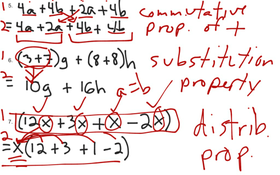 1 4a + 4b + 2a + 4b commutative
2 = 4a + 2a + 4b + 4b prop. of +
1 6. (3+7)g + (8+8)h substitution
2 = 10g + 16h a=b property
1 7. (12x + 3x + x - 2x) distrib.
2 = x(12 + 3 + 1 - 2) prop.